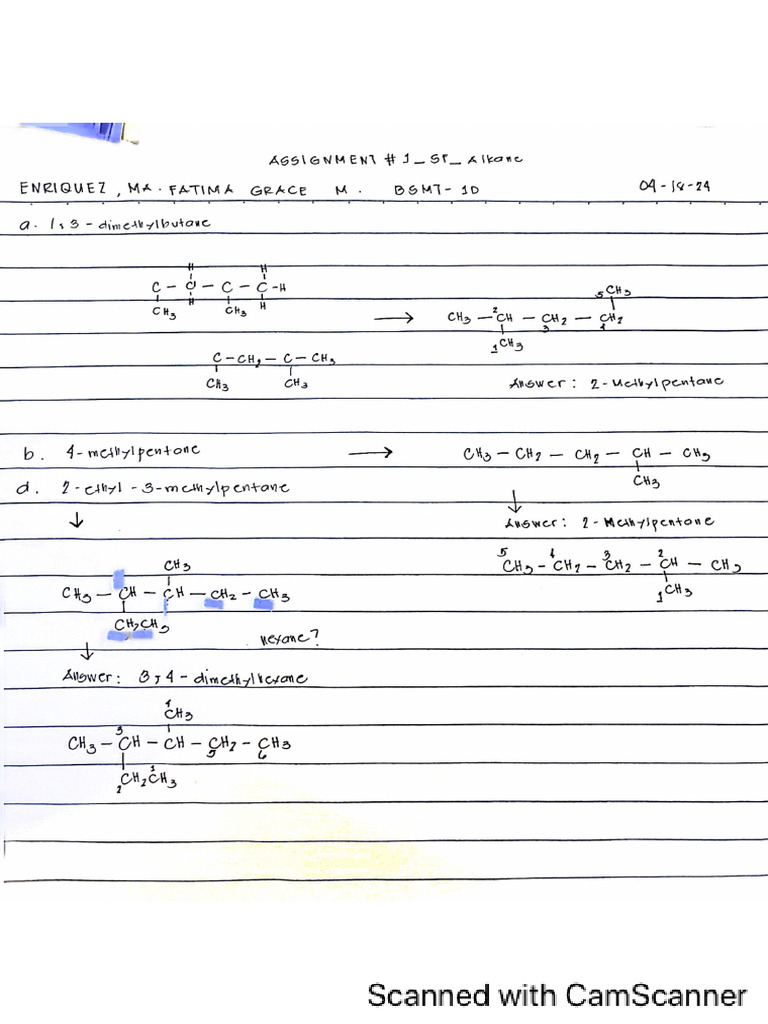 ASSIGNMENT # 1_ SF_ Alkane
ENRIQUEZ, MA. FATIMA GRACE M. BSMT-1D 09-18-24
a. 1,3-dimethylbutane
H H
C - C - C - C - H
CH3 H CH3 H
5 CH3
→ CH3 - 2 CH - CH2 - CH2
3 4
1 CH3
C - CH2 - C - CH3
CH3 CH3
Answer: 2-Methylpentane
b. 4-methylpentane → CH3 - CH2 - CH2 - CH - CH3
CH3
d. 2-ethyl-3-methylpentane
↓ ↓
Answer: 2-Methylpentane
5 4 3 2
CH3 - CH2 - CH2 - CH - CH3
1 CH3
CH3
CH3 - CH - CH - CH2 - CH3
CH2CH3
hexane?
↓
Answer: 3,4-dimethylhexane
4
CH3
3
CH3 - CH - CH - CH2 - CH3
5 6
2 CH2 1 CH3
Scanned with CamScanner